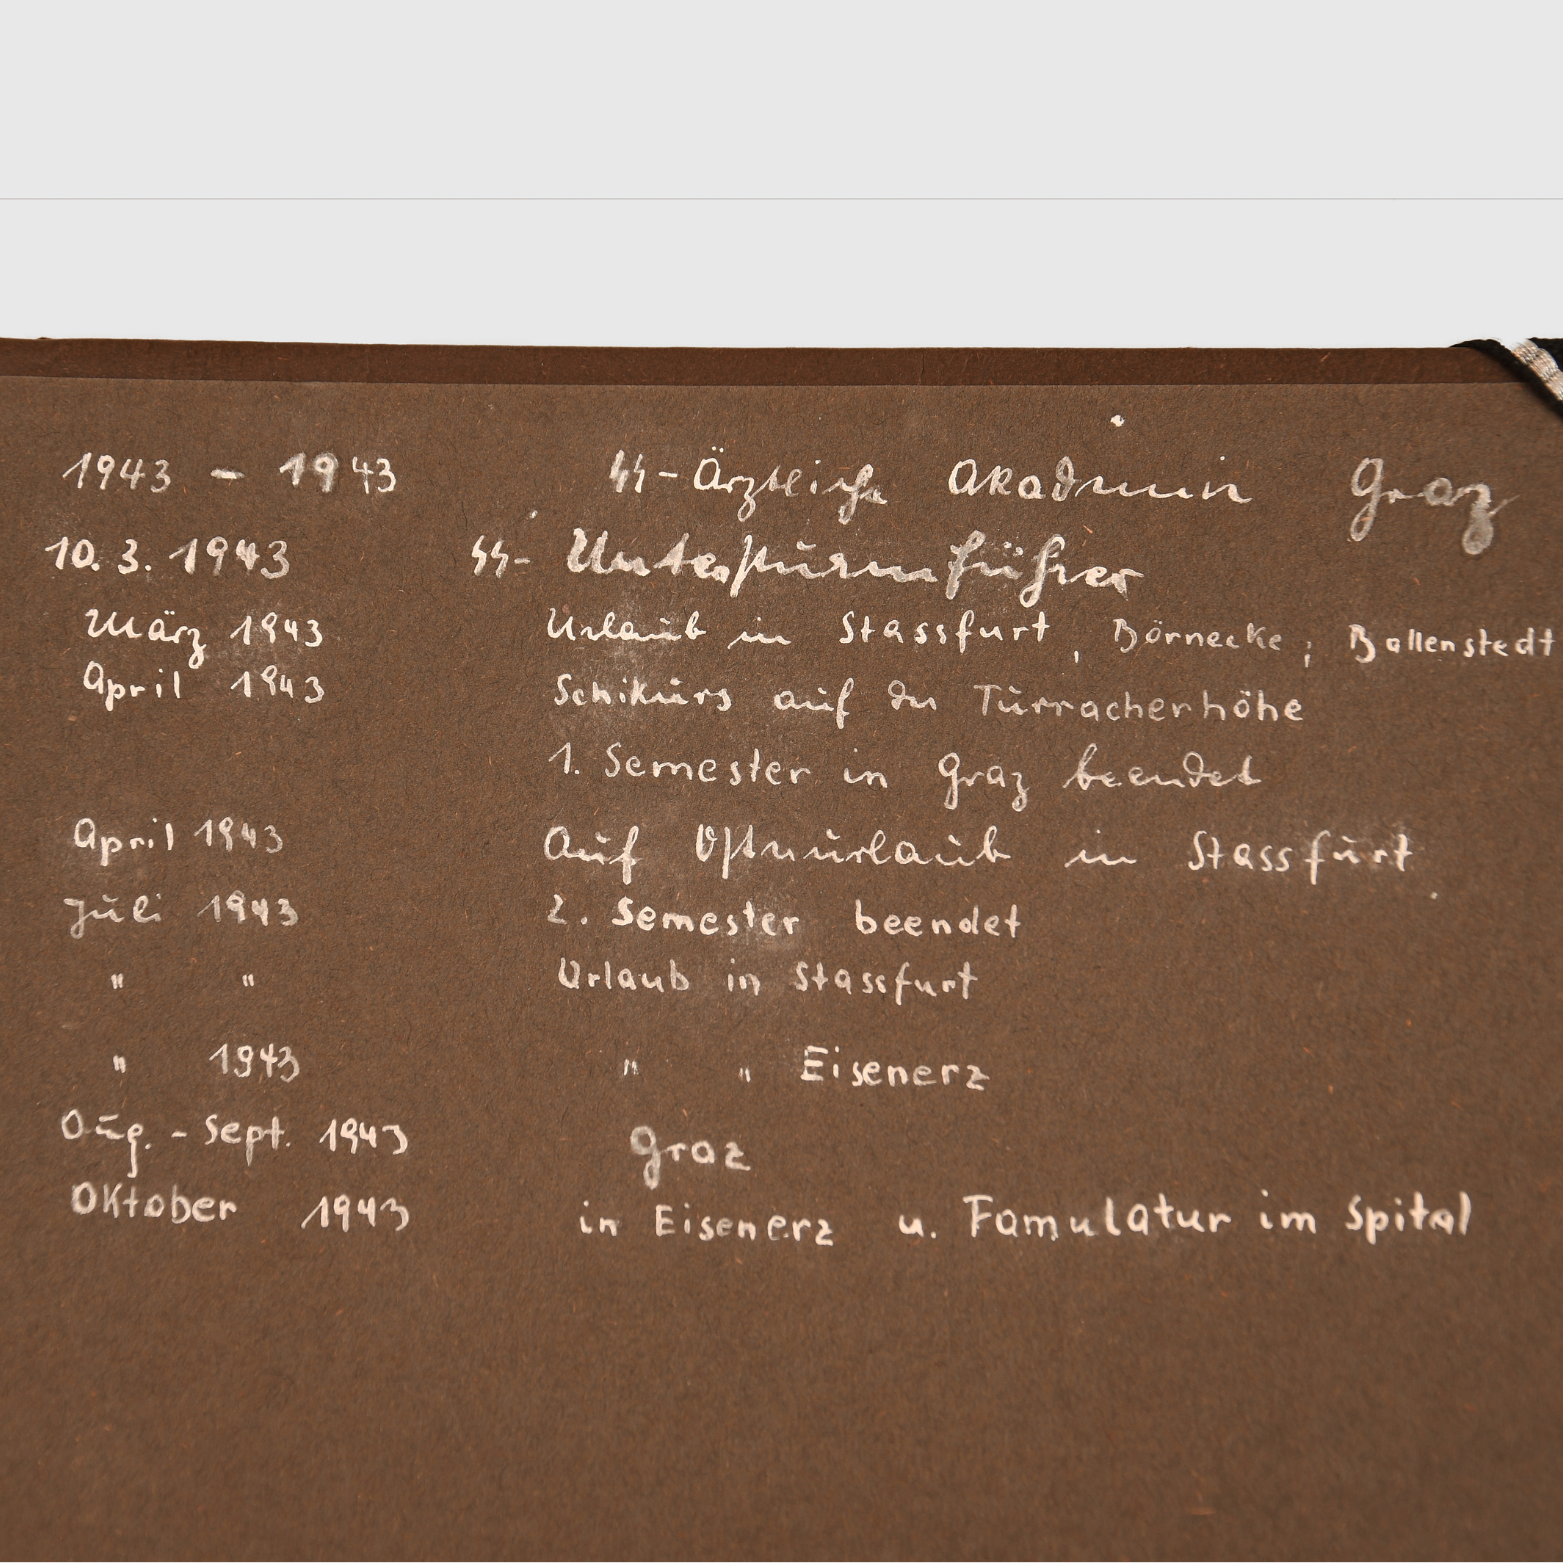 1943 - 1943 SS-Ärztliche Akademie Graz
10.3.1943 SS-Untersturmführer
März 1943 Urlaub in Stassfurt, Börnecke, Ballenstedt
April 1943 Schikurs auf der Turracherhöhe
1. Semester in Graz beendet
April 1943 Auf Osterurlaub in Stassfurt
Juli 1943 2. Semester beendet
" " Urlaub in Stassfurt
" 1943 " " Eisenerz
Aug. - Sept. 1943 Graz
Oktober 1943 in Eisenerz u. Famulatur im Spital